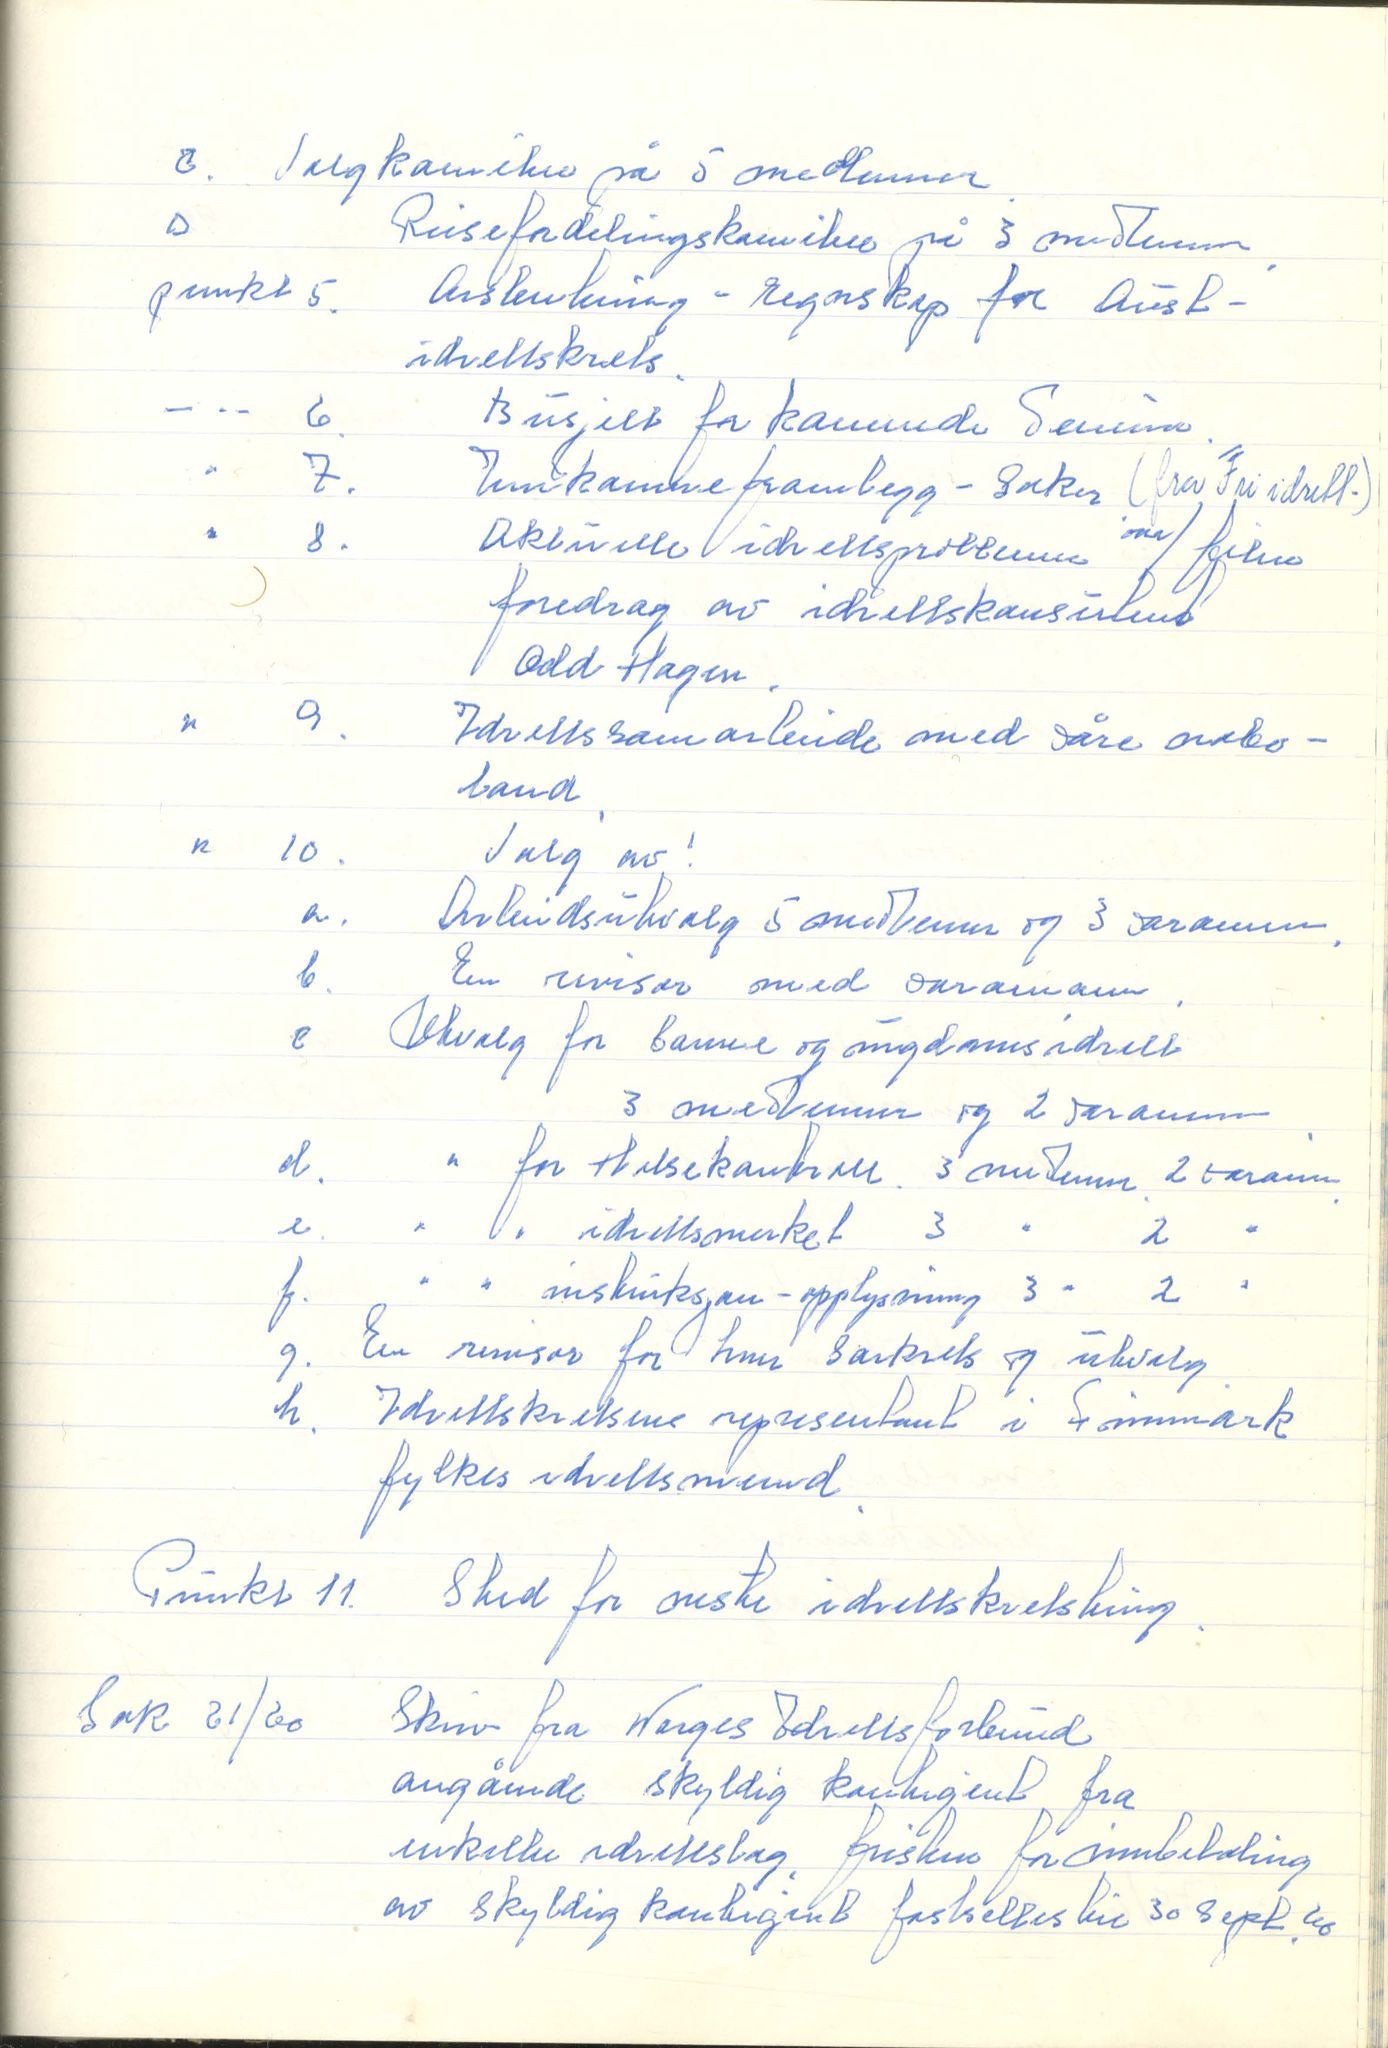 C. Valgkomite på 5 medlemmer.
D Reisefordelingskomite på 3 medlemmer.
punkt 5. Årsberetning - regnskap for Aust-
idrettskrets.
— -- 6. Busjett for kommende Termin.
" 7. Innkomne framlegg - saker (fra "Fri idrett-)
" 8. Aktuelle idrettsproblemer m/ film
foredrag av idrettskonsulent
Odd Hagen.
" 9. Idrettssamarbeide med våre nabo-
land.
" 10. Valg av!
a. Arbeidsutvalg 5 medlemmer og 3 varamenn.
b. En revisor med varamann.
c Utvalg for barne og ungdomsidrett
3 medlemmer og 2 varamenn.
d. " for Helsekontroll. 3 medlemmer. 2 varamenn.
e. " " idrettsmerket 3 " 2 "
f. " " instruksjon - opplysning 3 " 2 "
g. En revisor for hver særkrets og utvalg
h. Idrettskretsens representant i Finnmark
fylkes idrettsnemnd.
Punkt 11. Sted for neste idrettskretsting.
Sak 21/60 Skriv fra Norges Idrettsforbund
angående skyldig kontigent fra
enkelte idrettslag. fristen for innbetaling
av skyldig kontigent fastsettes til 30 Sept. 60